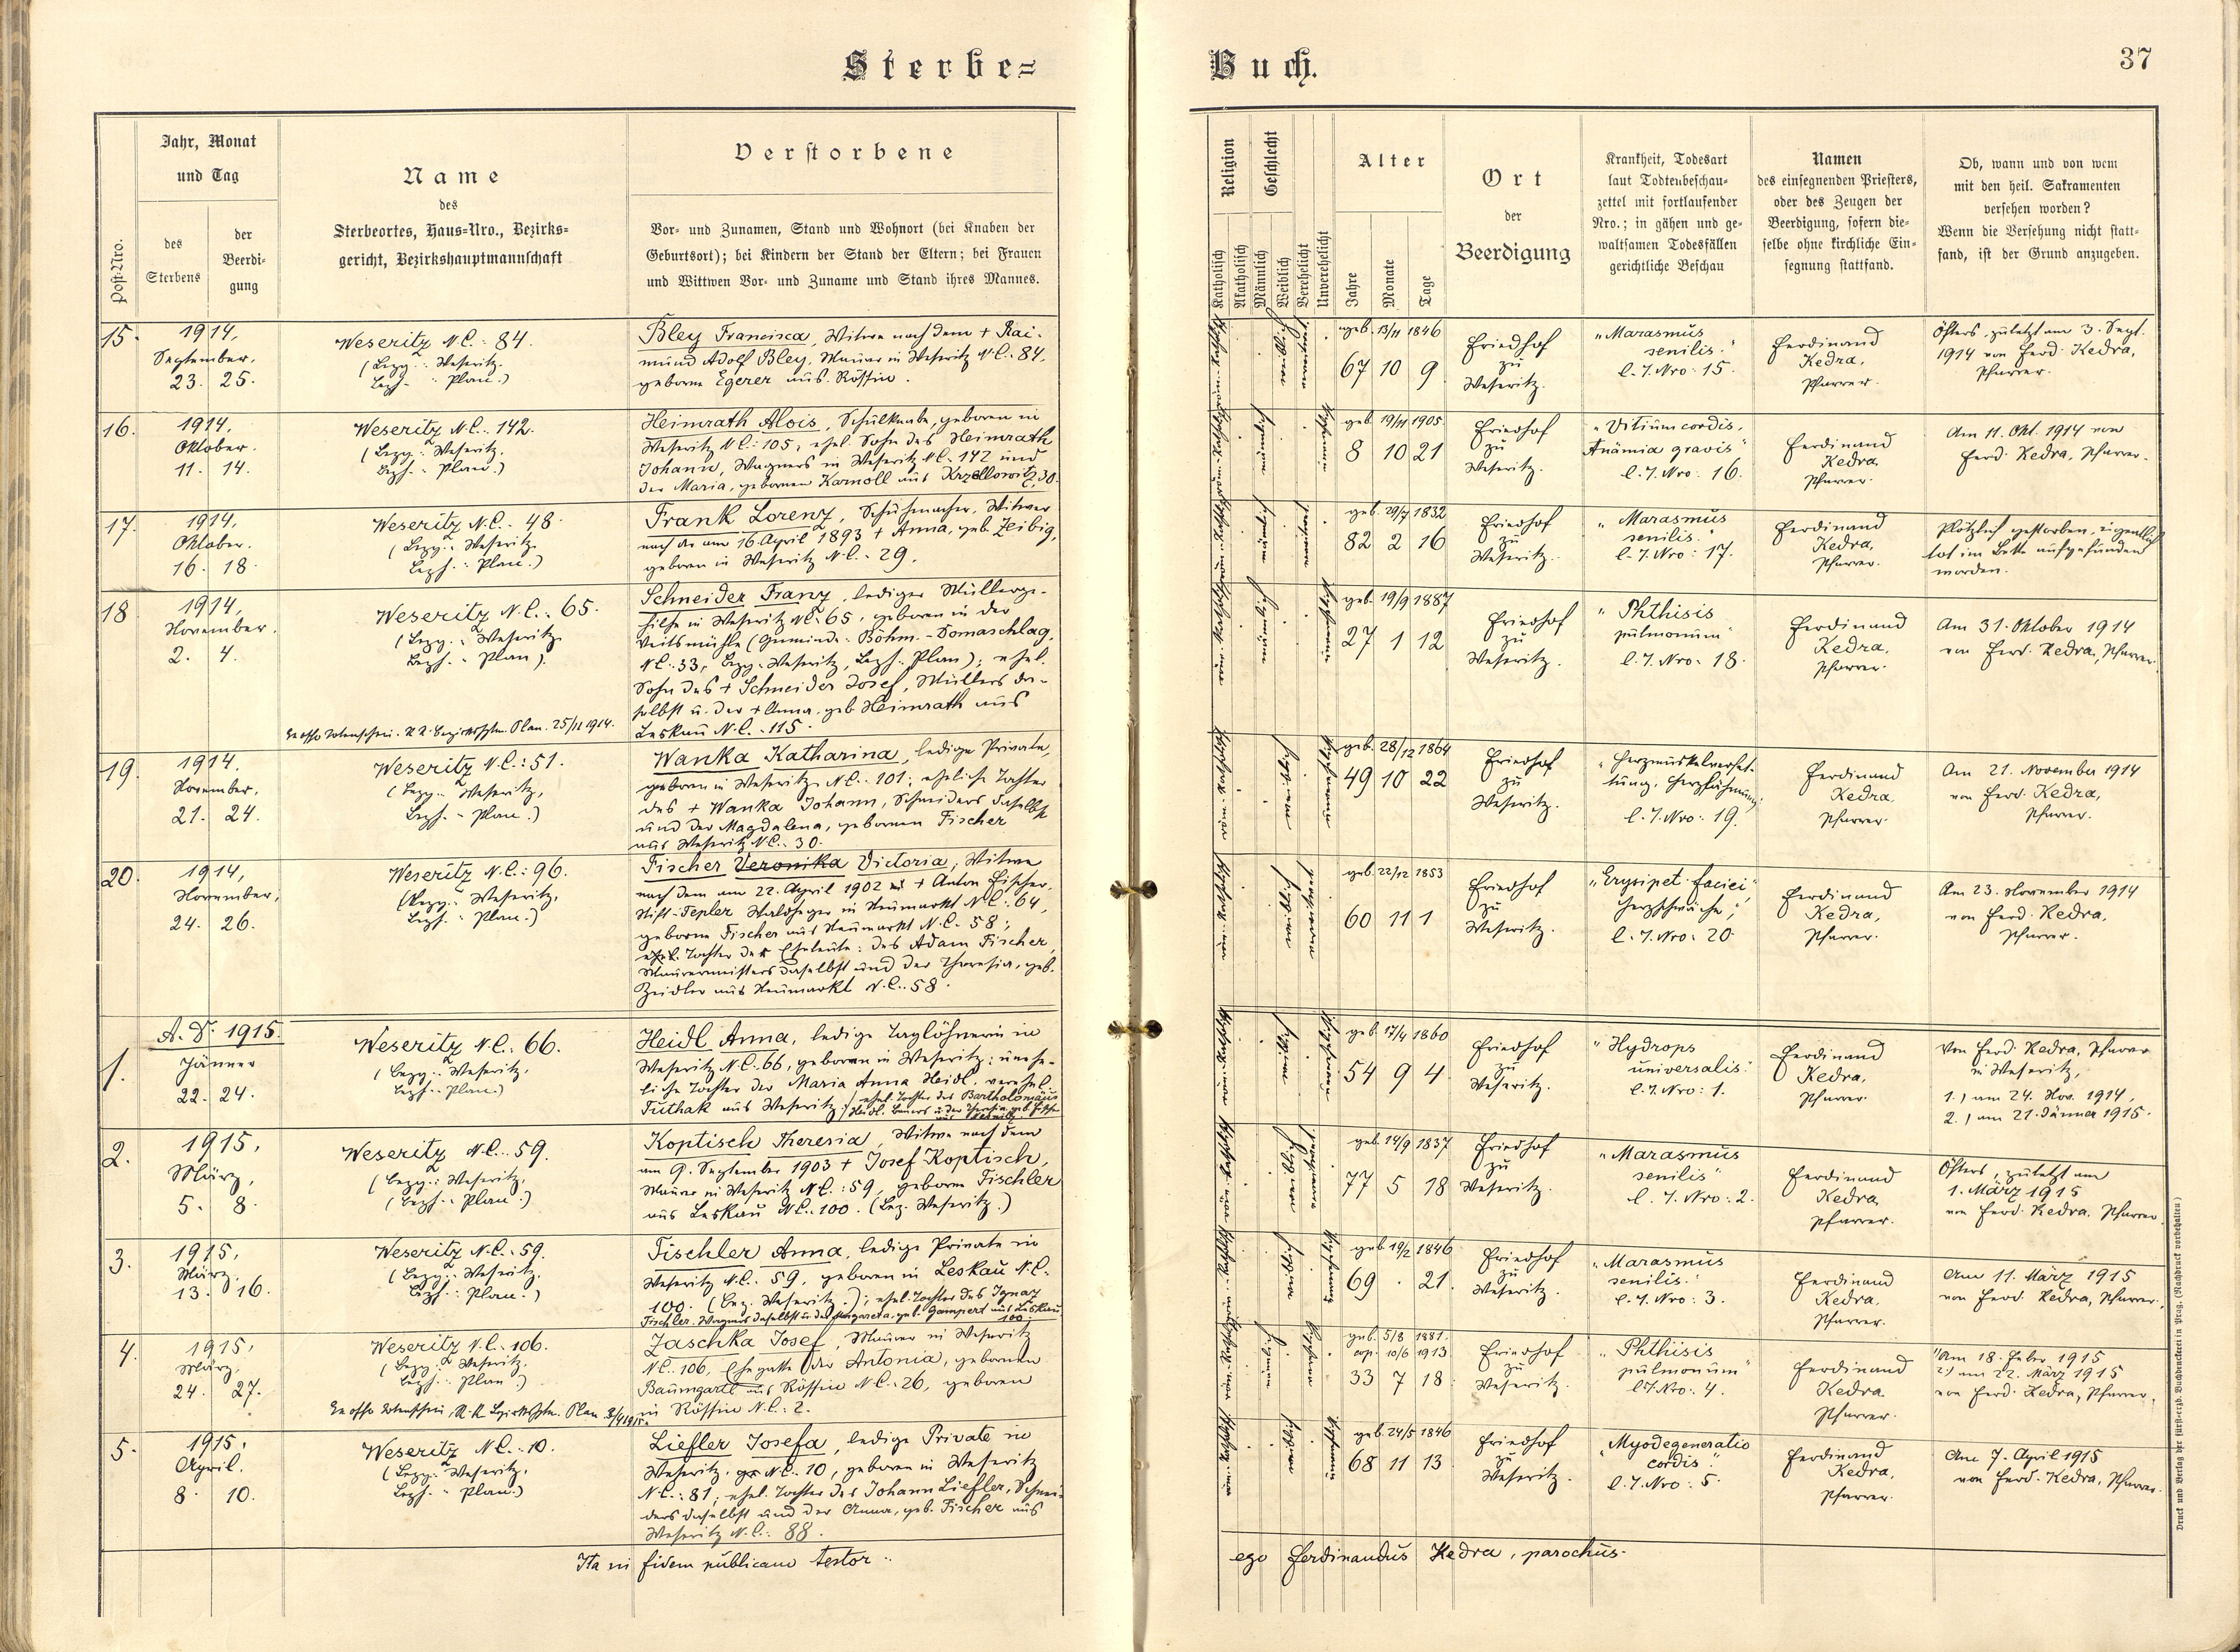 Sterbe=
Buch.
37
Post-Nro.
Jahr, Monat
und Tag
des
Sterbens
der
Beerdi-
gung
Name
des
Sterbeortes, Haus=Nro., Bezirks=
gericht, Bezirkshauptmannschaft
Verstorbene
Vor- und Zunamen, Stand und Wohnort (bei Knaben der
Geburtsort); bei Kindern der Stand der Eltern; bei Frauen
und Wittwen Vor- und Zuname und Stand ihres Mannes.
Religion
Katholisch
Akatholisch
Geschlecht
Männlich
Weiblich
Verehelicht
Unverehelicht
Alter
Jahre
Monate
Tage
Ort
der
Beerdigung
Krankheit, Todesart
laut Todtenbeschau-
zettel mit fortlaufender
Nro.; in gähen und ge-
waltsamen Todesfällen
gerichtliche Beschau
Namen
des einsegnenden Priesters,
oder des Zeugen der
Beerdigung, sofern die-
selbe ohne kirchliche Ein-
segnung stattfand.
Ob, wann und von wem
mit den heil. Sakramenten
versehen worden?
Wenn die Versehung nicht statt-
fand, ist der Grund anzugeben.
15.
1914,
September.
23. 25.
Weseritz N.C.: 84.
(Bezg.: Weseritz.
Bezh.: Plan.)
Bley Francisca, Witwe nach dem + Rai-
mund Adolf Bley, Maurer in Weseritz N.C.: 84,
geborne Egerer aus Rössin.
geb. 13/11 1846
67 10 9
Friedhof
zu
Weseritz.
"Marasmus
senilis."
l. T. Nro: 15.
Ferdinand
Kedra,
Pfarrer.
Öfters, zuletzt am 3. Sept.
1914 von Ferd. Kedra,
Pfarrer.
16.
1914,
Oktober.
11. 14.
Weseritz N.C.: 142.
(Bezg.: Weseritz.
Bezh.: Plan.)
Heimrath Alois, Schulknabe, geboren in
Weseritz N.C.: 105, ehel. Sohn des Heimrath
Johann, Wagners in Weseritz N.C.: 142 und
der Maria, gebornen Karnoll aus Krzellowitz, 30.
geb. 19/11 1905.
8 10 21
Friedhof
zu
Weseritz.
"Vitium cordis,
Anämia gravis"
l. T. Nro: 16.
Ferdinand
Kedra,
Pfarrer.
Am 11. Okt. 1914 von
Ferd. Kedra, Pfarrer.
17.
1914,
Oktober.
16. 18.
Weseritz N.C.: 48.
(Bezg.: Weseritz.
Bezh.: Plan.)
Frank Lorenz, Schuhmacher, Witwer
nach der am 16. April 1893 + Anna, geb. Zeibig,
geboren in Weseritz N.C.: 29.
geb. 29/7 1832
82 2 16
Friedhof
zu
Weseritz.
"Marasmus
senilis."
l. T. Nro: 17.
Ferdinand
Kedra,
Pfarrer.
Plötzlich gestorben, eigentlich
tot im Bette aufgefunden
worden.
18.
1914,
November.
2. 4.
Weseritz N.C.: 65.
(Bezg.: Weseritz.
Bezh.: Plan.)
Ex offo Totenschein. K. K. Bezirkshptm. Plan. 25/11 1914.
Schneider Franz, lediger Müllerge-
hilfe in Weseritz N.C.: 65, geboren in der
Veitsmühle (Gemeinde: Böhm.-Domaschlag,
N.C.: 33, Bezg.: Weseritz, Bezh.: Plan); ehel.
Sohn des + Schneider Josef, Müllers da-
selbst u. der + Anna, geb. Heimrath aus
Leskau N.C.: 115.
geb. 19/9 1887
27 1 12
Friedhof
zu
Weseritz.
"Phthisis
pulmonum"
l. T. Nro: 18.
Ferdinand
Kedra,
Pfarrer.
Am 31. Oktober 1914
von Ferd. Kedra, Pfarrer.
19.
1914.
November,
21. 24.
Weseritz N.C.: 51.
(Bezg.: Weseritz,
Bezh.: Plan.)
Wanka Katharina, ledige Private,
geboren in Weseritz N.C.: 101; eheliche Tochter
des + Wanka Johann, Schneiders daselbst
und der Magdalena, gebornen Fischer
aus Weseritz N.C.: 30.
geb. 28/12 1864
49 10 22
Friedhof
zu
Weseritz.
"Herzmuskelverfet-
tung, Herzlähmung"
l. T. Nro: 19.
Ferdinand
Kedra,
Pfarrer.
Am 21. November 1914
von Ferd. Kedra,
Pfarrer.
20.
1914,
November,
24. 26.
Weseritz N.C.: 96.
(Bezg.: Weseritz,
Bezh.: Plan.)
Fischer Veronika Victoria, Witwe
nach dem am 22. April 1902 + Anton Fischer,
Stift-Tepler Waldheger in Neumarkt N.C.: 64,
geborne Fischer aus Neumarkt N.C.: 58;
ehel. Tochter der Eheleute: des Adam Fischer,
Maurermeisters daselbst und der Theresia, geb.
Zeidler aus Neumarkt N.C.: 58.
geb. 22/12 1853
60 11 1
Friedhof
zu
Weseritz.
"Erysipel faciei,
Herzschwäche";
l. T. Nro: 20.
Ferdinand
Kedra,
Pfarrer.
Am 23. November 1914
von Ferd. Kedra,
Pfarrer.
A. D. 1915.
1.
Jänner
22. 24.
Weseritz N.C.: 66.
(Bezg.: Weseritz,
Bezh.: Plan.)
Heidl Anna, ledige Taglöhnerin in
Weseritz N.C.: 66, geboren in Weseritz; unehe-
liche Tochter der Maria Anna Heidl, verehel.
Tuthak aus Weseritz, ehel. Tochter des Bartholomäus
Heidl, Bauers u. der Theresia, geb. Fischer
geb. 17/4 1860
54 9 4.
Friedhof
zu
Weseritz.
"Hydrops
universalis."
l. T. Nro: 1.
Ferdinand
Kedra,
Pfarrer.
Von Ferd. Kedra, Pfarrer
in Weseritz,
1.) am 24. Nov. 1914,
2.) am 21. Jänner 1915.
2.
1915,
März,
5. 8.
Weseritz N.C.: 59.
(Bezg.: Weseritz,
(Bezh.: Plan.)
Koptisch Theresia, Witwe nach dem
am 9. September 1903 + Josef Koptisch,
Maurer in Weseritz N.C.: 59, geborne Fischler
aus Leskau N.C.: 100. (Bez. Weseritz.)
geb. 14/9 1837
77 5 18
Friedhof
zu
Weseritz.
"Marasmus
senilis"
l. T. Nro: 2.
Ferdinand
Kedra,
Pfarrer.
Öfters, zuletzt am
1. März 1915
von Ferd. Kedra, Pfarrer.
3.
1915,
März.
13. 16.
Weseritz N.C.: 59.
(Bezg.: Weseritz,
Bezh.: Plan.)
Fischler Anna, ledige Private in
Weseritz N.C.: 59, geboren in Leskau N.C.
100. (Bez. Weseritz.); ehel. Tochter des Ignaz
Fischler, Wagners daselbst u. der Margareta, geb. Gampert aus Leskau
100.
geb. 19/2 1846
69 . 21.
Friedhof
zu
Weseritz.
"Marasmus
senilis."
l. T. Nro: 3.
Ferdinand
Kedra,
Pfarrer.
Am 11. März 1915
von Ferd. Kedra, Pfarrer.
4.
1915,
März,
24. 27.
Weseritz N.C.: 106.
(Bezg.: Weseritz,
Bezh.: Plan.)
Ex offo Totenschein, K. K. Bezirkshptm. Plan 3/4 1915.
Zaschka Josef, Maurer in Weseritz
N.C.: 106, Ehegatte der Antonia, gebornen
Baumgartl aus Rössin N.C.: 26, geboren
in Rössin N.C.: 2.
geb. 5/8 1881.
cop. 10/6 1913.
33 7 18.
Friedhof
zu
Weseritz.
"Phthisis
pulmonum"
l. T. Nro: 4.
Ferdinand
Kedra,
Pfarrer.
1) Am 18. Febr. 1915
2) am 22. März 1915
von Ferd. Kedra, Pfarrer.
5.
1915,
April.
8. 10.
Weseritz N.C.: 10.
(Bezg.: Weseritz,
Bezh.: Plan.)
Liefler Josefa, ledige Private in
Weseritz N.C.: 10, geboren in Weseritz
N.C.: 81; ehel. Tochter des Johann Liefler, Schnei-
ders daselbst und der Anna, geb. Fischer aus
Weseritz N.C.: 88.
geb. 24/5 1846
68 11 13.
Friedhof
zu
Weseritz.
"Myodegeneratio
cordis."
l. T. Nro: 5.
Ferdinand
Kedra,
Pfarrer.
Am 7. April 1915
von Ferd. Kedra, Pfarrer.
Ita in fidem publicam testor
ego Ferdinandus Kedra, parochus.
Druck und Verlag der fürst-erzb. Buchdruckerei in Prag. (Nachdruck vorbehalten.)